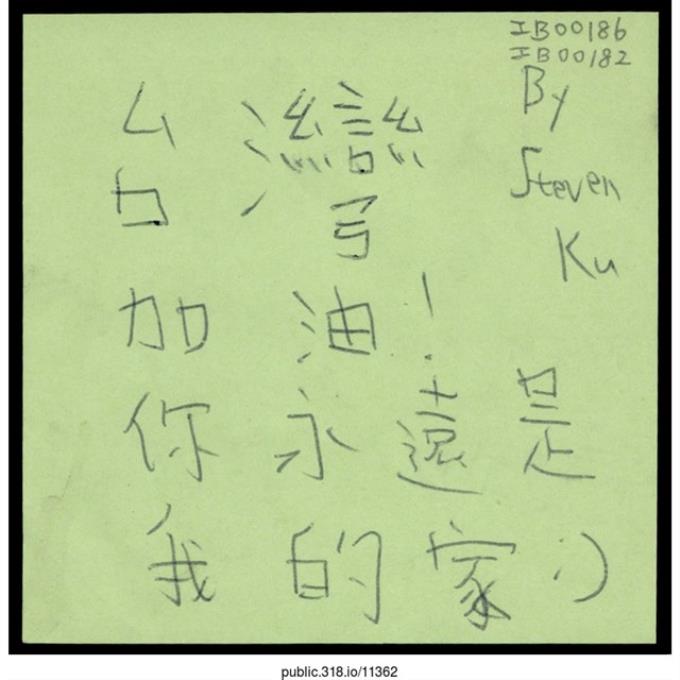 IB00186
IB00182
By
Steven
Ku
台灣
加油!
你永遠是
我的家:)
public.318.io/11362